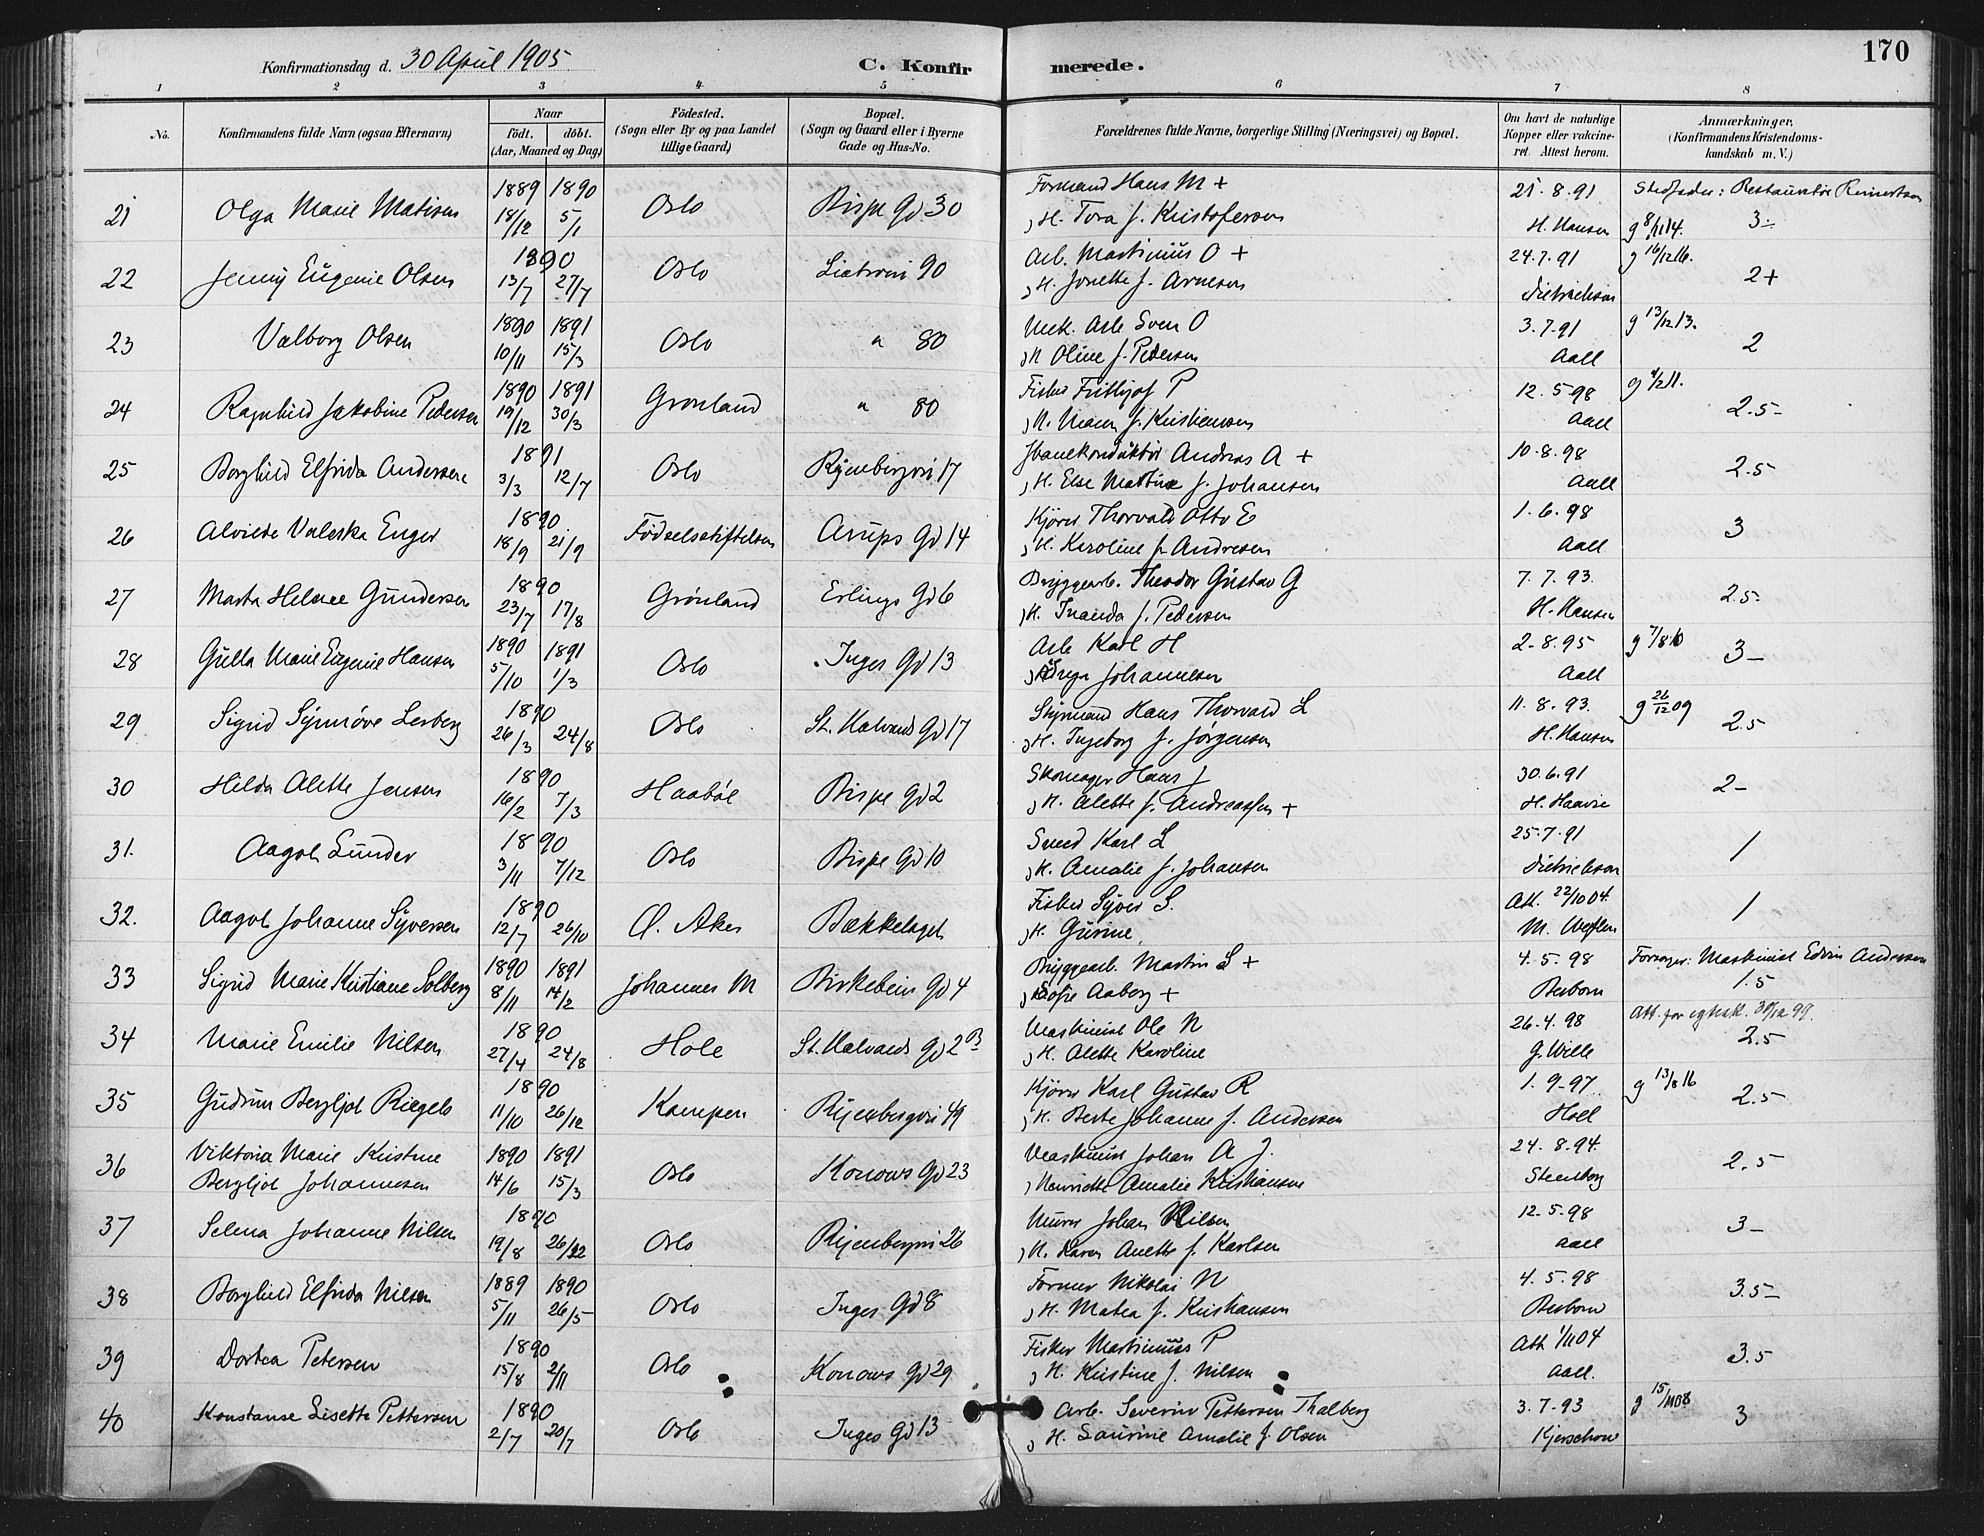 170
Konfirmationsdag d. 30 April 1905
C. Konfirmerede.
1 2 3 4 5 6 7 8
No.
Konfirmandens fulde Navn (ogsaa Efternavn)
Naar
födt. döbt.
(Aar, Maaned og Dag)
Födested.
(Sogn eller By og paa Landet
tillige Gaard)
Bopæl.
(Sogn og Gaard eller i Byerne
Gade og Hus-No.
Forældrenes fulde Navne, borgerlige Stilling (Næringsvei) og Bopæl.
Om havt de naturlige
Kopper eller vakcine-
ret. Attest herom.
Anmærkninger.
(Konfirmandens Kristendoms-
kundskab m. V.)
21 Olga Marie Matisen 1889 18/12 1890 5/1 Oslo Bispe Gd 30 Formand Hans M + 21.8.91 Stedfader: Restauratör
, H. Tora f. Kristofersen H. Hansen g 8/11 14. 3-
22 Jenny Eugenie Olsen 1890 13/7 27/7 Oslo 90 Arb. Martinius O + 24.7.91 g 16/12 16.
, H. Jonette f. Arnesen Dietrichson 2+
23 Valborg Olsen 1890 10/11 1891 15/3 Oslo " 80 Mek. Arb Sven O 3.7.91 g 13/12 13.
, H Oline f. Pedersen Aall 2
24 Ragnhild Jakobine Pedersen 1890 19/12 1891 30/3 Grønland " 80 Fisker Frithjof P 12.5-98 g 4/2 11.
, H. Maren f. Kristiansen Aall 2.5-
25 Borghild Elfrida Andersen 1891 3/3 12/7 Oslo Ryenbergvei 17 Jbanekonduktör Andreas A + 10.8.98
, H. Else Martine f. Johansen Aall 2.5
26 Alvilde Valeska Enger 1890 18/9 21/9 Födselsstiftelsen Arups Gd 14 Kjörer Thorvald Otto E 1.6.98
, H. Karoline f. Andresen Aall 3
27 Marta Helene Gundersen 1890 23/7 17/8 Grönland Erlings Gd 6 Bryggearb. Theodor Gustav G 7.7.93.
, H. Inanda f. Pedersen H. Hansen 2.5-
28 Gulla Marie Eugenie Hansen 1890 5/10 1891 1/3 Oslo Inges Gd 13 Arb Karl H 2-8.95 g 7/8 10
Inga Johannesen Aall 3-
29 Sigrid Synnöve Lerberg 1890 26/3 24/8 Oslo St. Halvards Gd 17 Styrmand Hans Thorvald L 11.8.93. g 26/12 09
, H. Ingeborg f. Jørgensen H. Hansen 2.5
30 Hilda Alette Jensen 1890 16/2 7/3 Haaböl Bispe Gd 2 Skomager Hans J 30.6.91
, H. Alette f. Andreassen + H. Haavie 2-
31. Aagot Lunder 1890 3/11 7/12 Oslo Bispe Gd 10 Smed Karl L 25.7.91
, H. Amalie f. Johansen Dietrichson 1
32. Aagot Johanne Syversen 1890 12/7 26/10 Ø. Aker Bækkelaget Fisker Syver S. Att. 22/10 04.
, H. Gurine 1
33 Sigrid Marie Kristiane Solberg 1890 8/11 1891 14/2 Johannes M Birkebein Gd 4 Bryggearb. Martin S + 4.5.98 Forsørger: Maskinist Edvin Andersen
Sofie Aaberg + 1.5
34 Marie Emilie Nilsen 1890 27/4 24/8 Hole St. Halvards Gd 2B Maskinist Ole N 26.4.98
, H. Alette Karoline G. Wille 2.5
35 Gudrun Bergljot Riegels 1890 11/10 26/12 Kampen Ryenbergvei 49 Kjörer Karl Gustav R 1.9-97 g 13/8 16
, H. Berte Johanne f. Andersen Hoel 2.5
36 Viktoria Marie Kristine 1890 1891 Maskinist Johan A J. 24.8.94.
Bergljot Johannesen 14/6 15/3 Oslo Konows Gd 23 , Henriette Amalie Kristiansen Steenberg 2.5
37 Selma Johanne Nilsen 1890 19/8 26/12 Oslo Ryenbergvei 26 Murer Johan Nilsen 12.5-98
, H. Karen Anette f. Karlsen Aall 3-
38 Borghild Elfrida Nilsen 1889 5/11 1890 26/5- Oslo Inges Gd 8 Former Nikolai N 4.5-98
, H. Matea f. Kristiansen Berborn 3.5-
39 Dortea Petersen 1890 15/8 2/11 Oslo Konows Gd 29 Fisker Martinius P Att 1/11 04
, H. Kristine f. Nilsen Aall. 3.5
40 Konstanse Lisette Pettersen 1890 2/7 20/7 Oslo Inges Gd 13 Arb. Severin Pettersen Thalberg 3.7-93 g 15/11 08
, H. Laurine Amalie f. Olsen Kjerschow 3